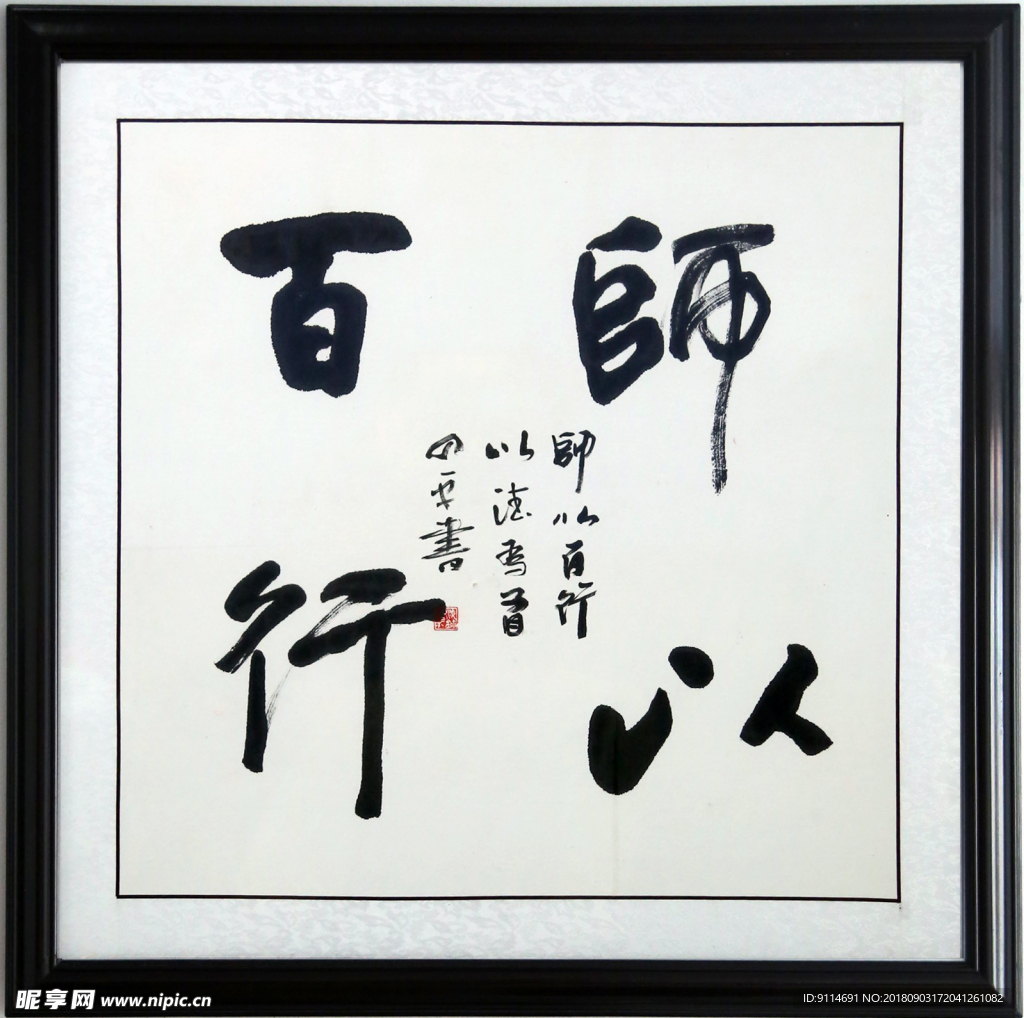 師以
百行
師以百行
以德為首
書
昵享网 www.nipic.cn
ID:9114691 NO:20180903172041261082